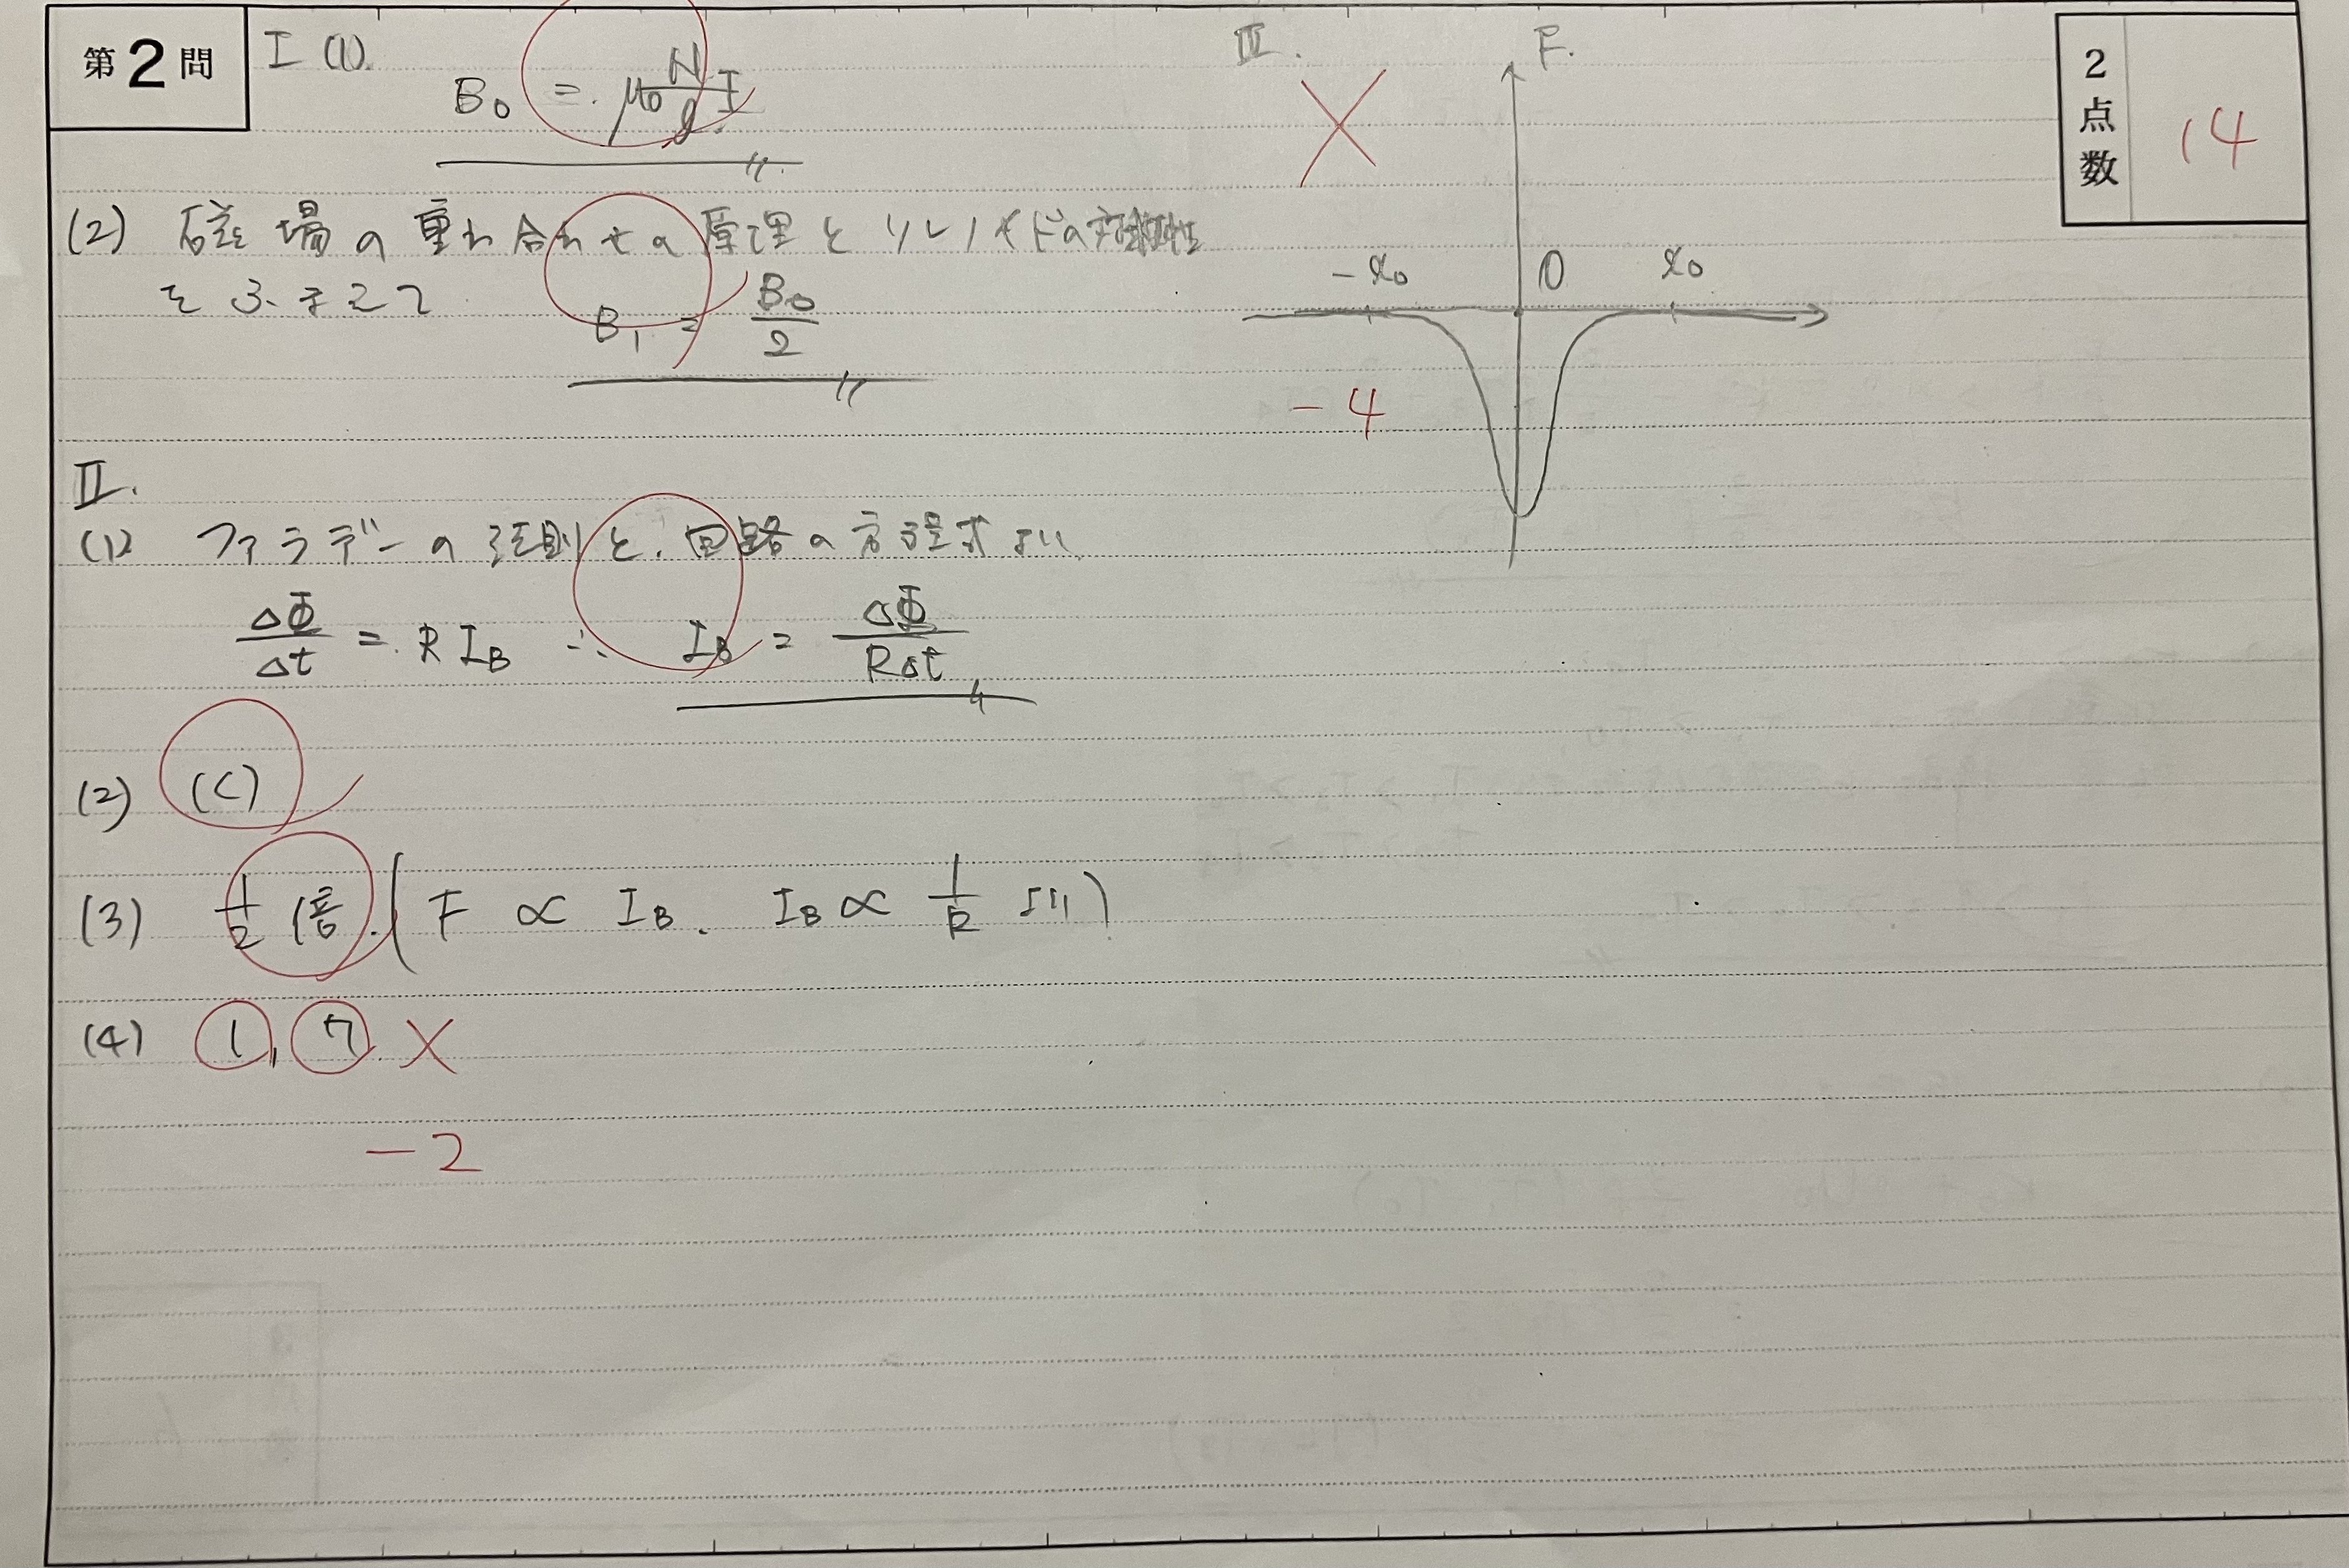 第2問
I (1)
B₀ = μ₀ N/l I
(2) 磁場の重ね合わせの原理とソレノイドの対称性
をふまえて
B₁ = B₀/2
II.
(1) ファラデーの法則と、回路の方程式より
ΔΦ/Δt = R I_B ∴ I_B = ΔΦ/RΔt
(2) (C)
(3) 1/2 倍. (F ∝ I_B. I_B ∝ 1/R より)
(4) 1, 7. ×
-2
III.
F.
×
-x₀ 0 x₀
-4
2点数
14